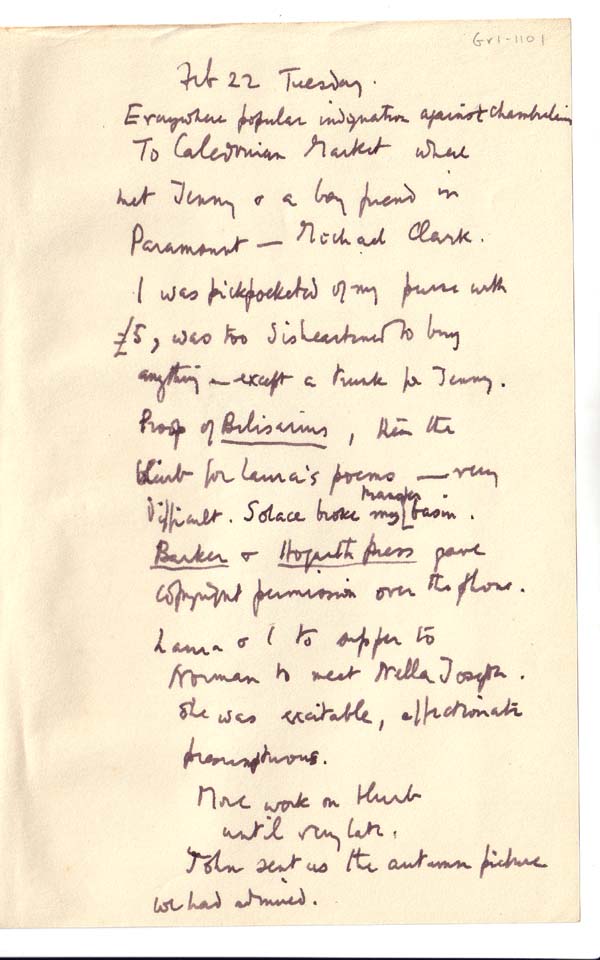 Gr1-1101
Feb 22 Tuesday.
Everywhere popular indignation against Chamberlain
To Caledonian Market where
met Jenny & a boy friend in
Paramount – Michael Clark.
I was pickpocketed of my purse with
£5, was too disheartened to buy
anything – except a trunk for Jenny.
Proof of Belisarius, then the
blurb for Laura's poems – very
difficult. Solace broke my basin.
Barker & Hogarth press gave
copyright permission over the phone.
Laura & I to supper to
Norman to meet Nella Joseph.
She was excitable, affectionate
presumptuous.
More work on blurb
until very late.
John sent us the autumn picture
we had admired.